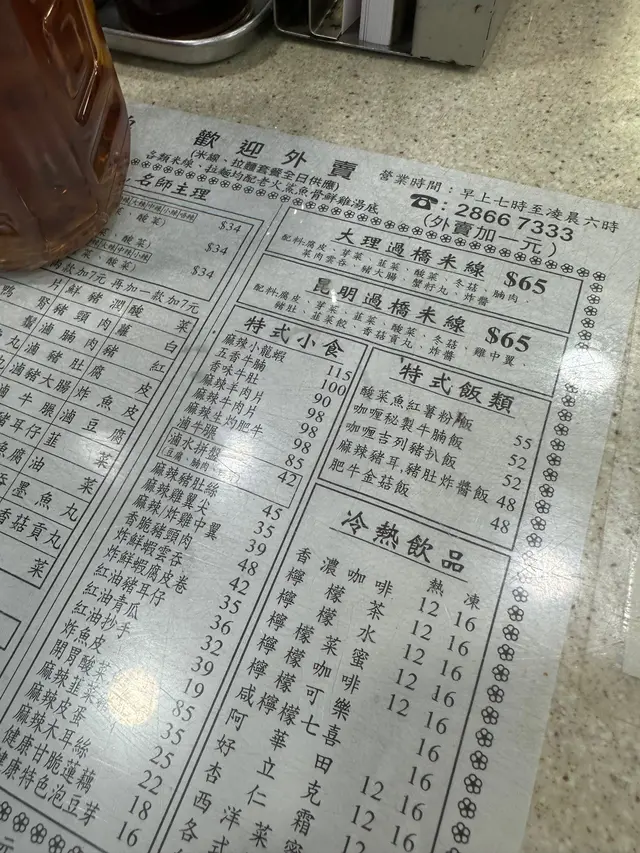 歡迎外賣
(米線、拉麵套餐全日供應)
各類米線、拉麵均配老火鯊魚骨鮮雞湯底
營業時間：早上七時至凌晨六時
☎：2866 7333
(外賣加一元)
名師主理
$34
$34
加7元 再加一款加7元
大理過橋米線 $65
配料:腐皮、芽菜、韮菜、酸菜、冬菇、腩肉、
菜肉雲吞、豬大腸、蟹籽丸、炸醬
昆明過橋米線 $65
配料:腐皮、芽菜、韮菜、酸菜、冬菇、雞中翼、
豬肚、韮菜餃、香菇貢丸、炸醬
特式小食
麻辣小龍蝦 115
五香牛腩 100
香味牛肚 90
麻辣羊肉片 98
麻辣牛肉片 98
麻辣生灼肥牛 98
滷牛𦟌 85
滷水拼盤 42
麻辣豬肚絲 45
麻辣雞翼尖 35
麻辣/炸雞中翼 39
香脆豬頸肉 48
炸鮮蝦雲吞 42
炸鮮蝦腐皮卷 35
紅油豬耳仔 36
紅油青瓜 32
紅油抄手 39
炸魚皮 19
開胃酸菜 85
麻辣韮菜 35
麻辣皮蛋 25
麻辣木耳絲 22
健康甘脆蓮藕 18
健康特色泡豆芽 16
特式飯類
酸菜魚紅薯粉飯 55
咖喱秘製牛腩飯 52
咖喱吉列豬扒飯 52
麻辣豬耳,豬肚炸醬飯 48
肥牛金菇飯 48
冷熱飲品
熱 凍
香濃咖啡 12 16
檸檬茶 12 16
檸檬水 12 16
檸檬菜蜜 12 16
檸檬咖啡 12 16
檸檬可樂 16
咸檸檬七喜 16
阿華田 12 16
好立克 12 16
杏仁霜 12
西洋菜蜜
鮮豬潤
酸菜
豬頸肉
滷腩肉
滷豬肚
腐皮
滷豬大腸
炸魚皮
滷牛𦟌
滷豆腐
豬耳仔
韮菜
魚腐
油菜
墨魚丸
香菇貢丸